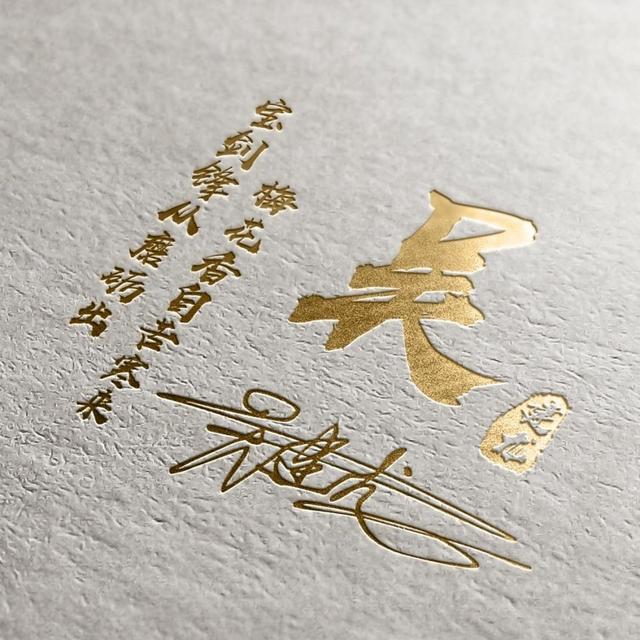 宝剑锋从磨砺出
梅花香自苦寒来
吴
吴建龙